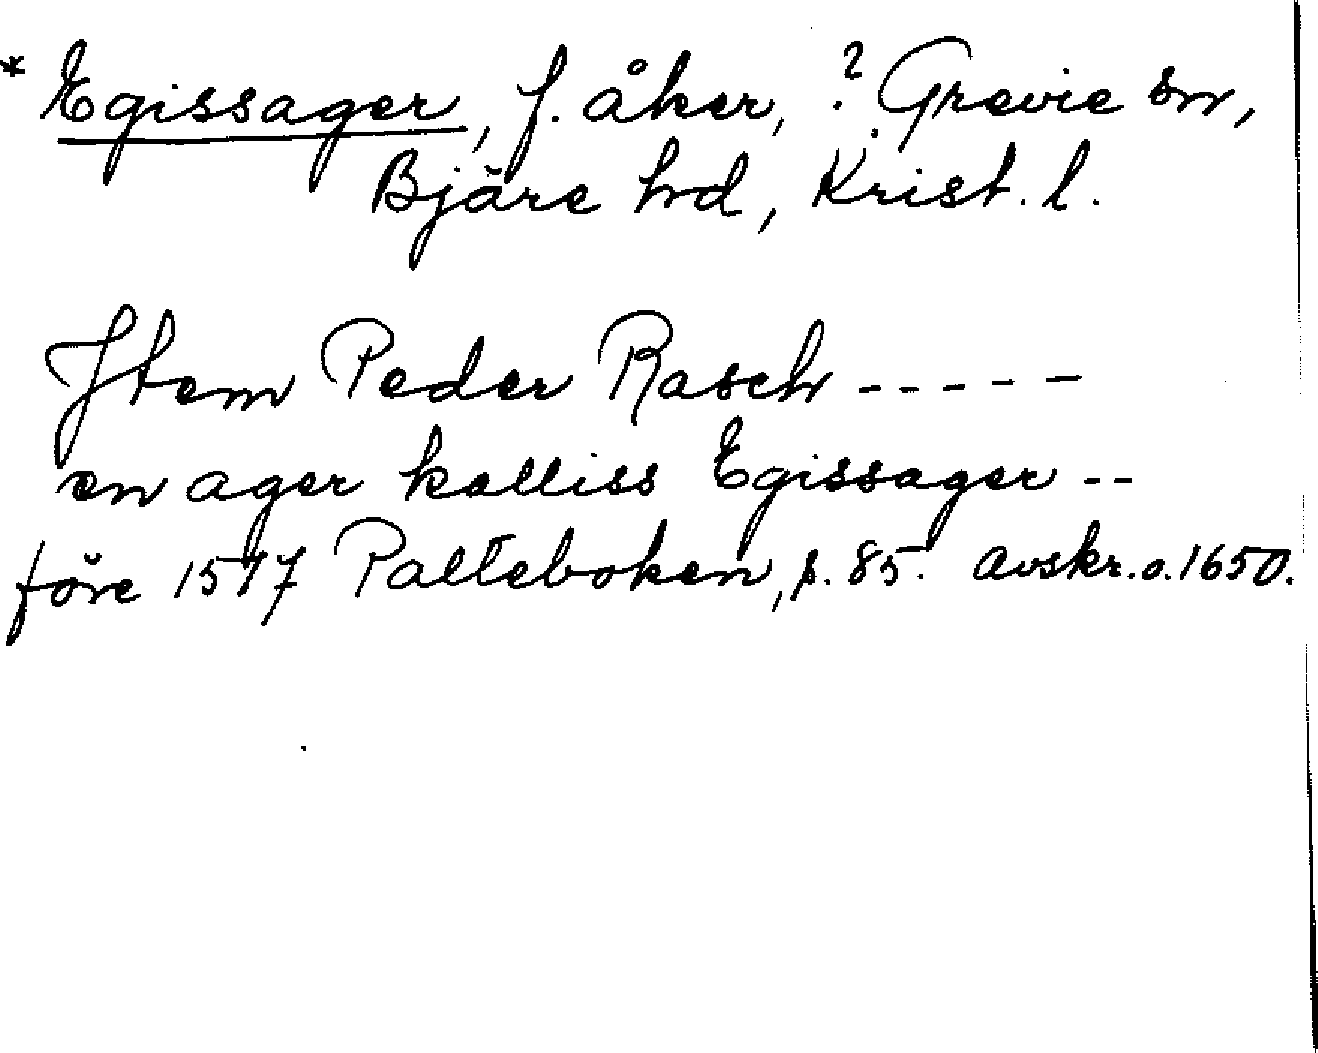 * Egissager, f. åker, ? Grevie sn,
Bjäre hd, Krist. l.
Item Peder Rasch -----
en ager kalliss Egissager --
före 1577 Palteboken, p. 85. Avskr. o. 1650.